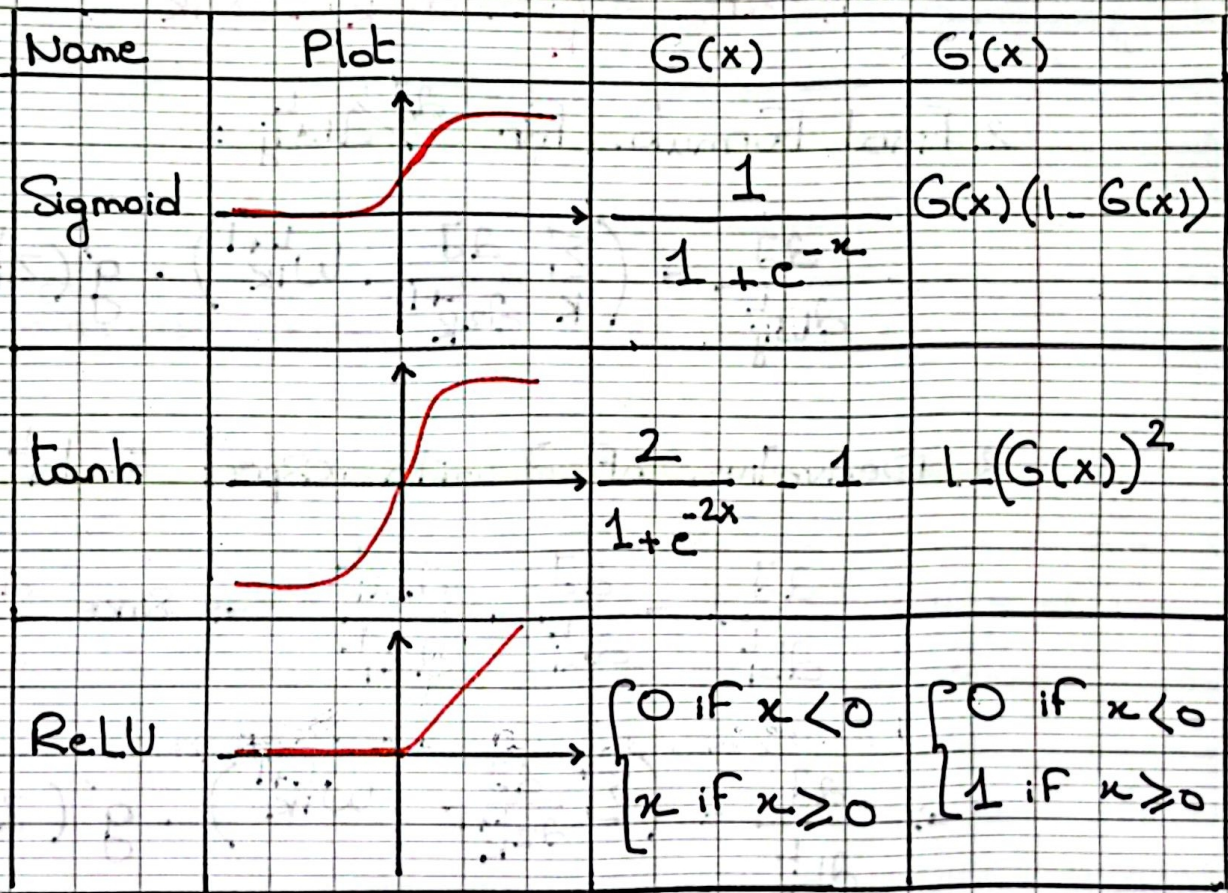 Name Plot G(x) G'(x)
Sigmoid 1/(1 + e^-x) G(x)(1 - G(x))
tanh 2/(1 + e^-2x) - 1 1 - (G(x))^2
ReLU {0 if x < 0 {0 if x < 0
{x if x ⩾ 0 {1 if x ⩾ 0